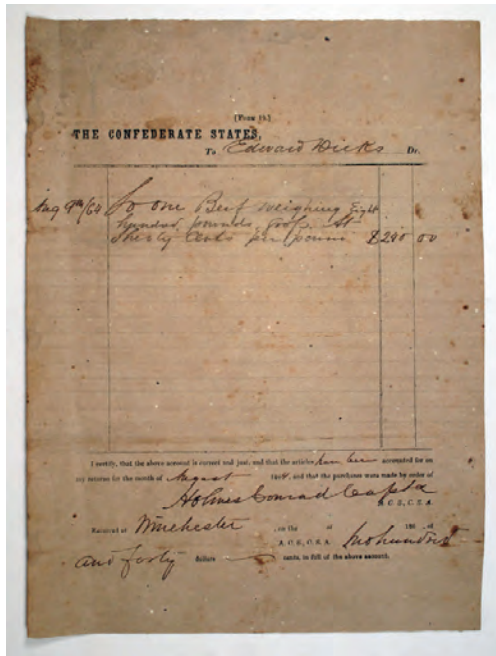 [Form 15.]
THE CONFEDERATE STATES,
To Edward Dicks Dr.
Aug 9th/64 To one Beef weighing Eight
hundred pounds, gross, At
Thirty Cents per pound $240 00
I certify, that the above account is correct and just; and that the articles have been accounted for on
my returns for the month of August 1864, and that the purchases were made by order of
Holmes Conrad Capt &
A. C. S., C. S. A.
Received at Winchester , on the of 186 , of
A. C. S., C. S. A. Two hundred
and forty dollars cents, in full of the above account.